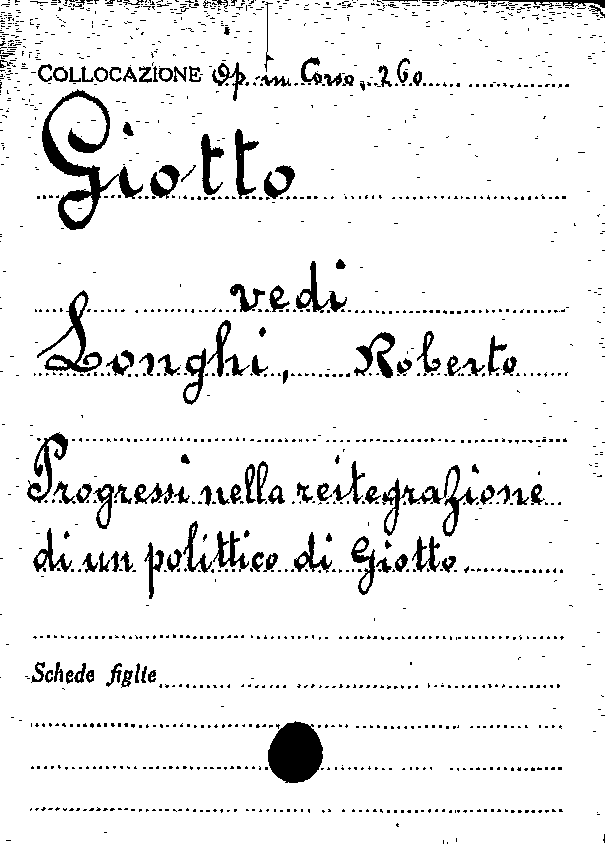 COLLOCAZIONE Op. in Corso, 260
Giotto
vedi
Longhi, Roberto
Progressi nella reitegrazione
di un polittico di Giotto.
Schede figlie